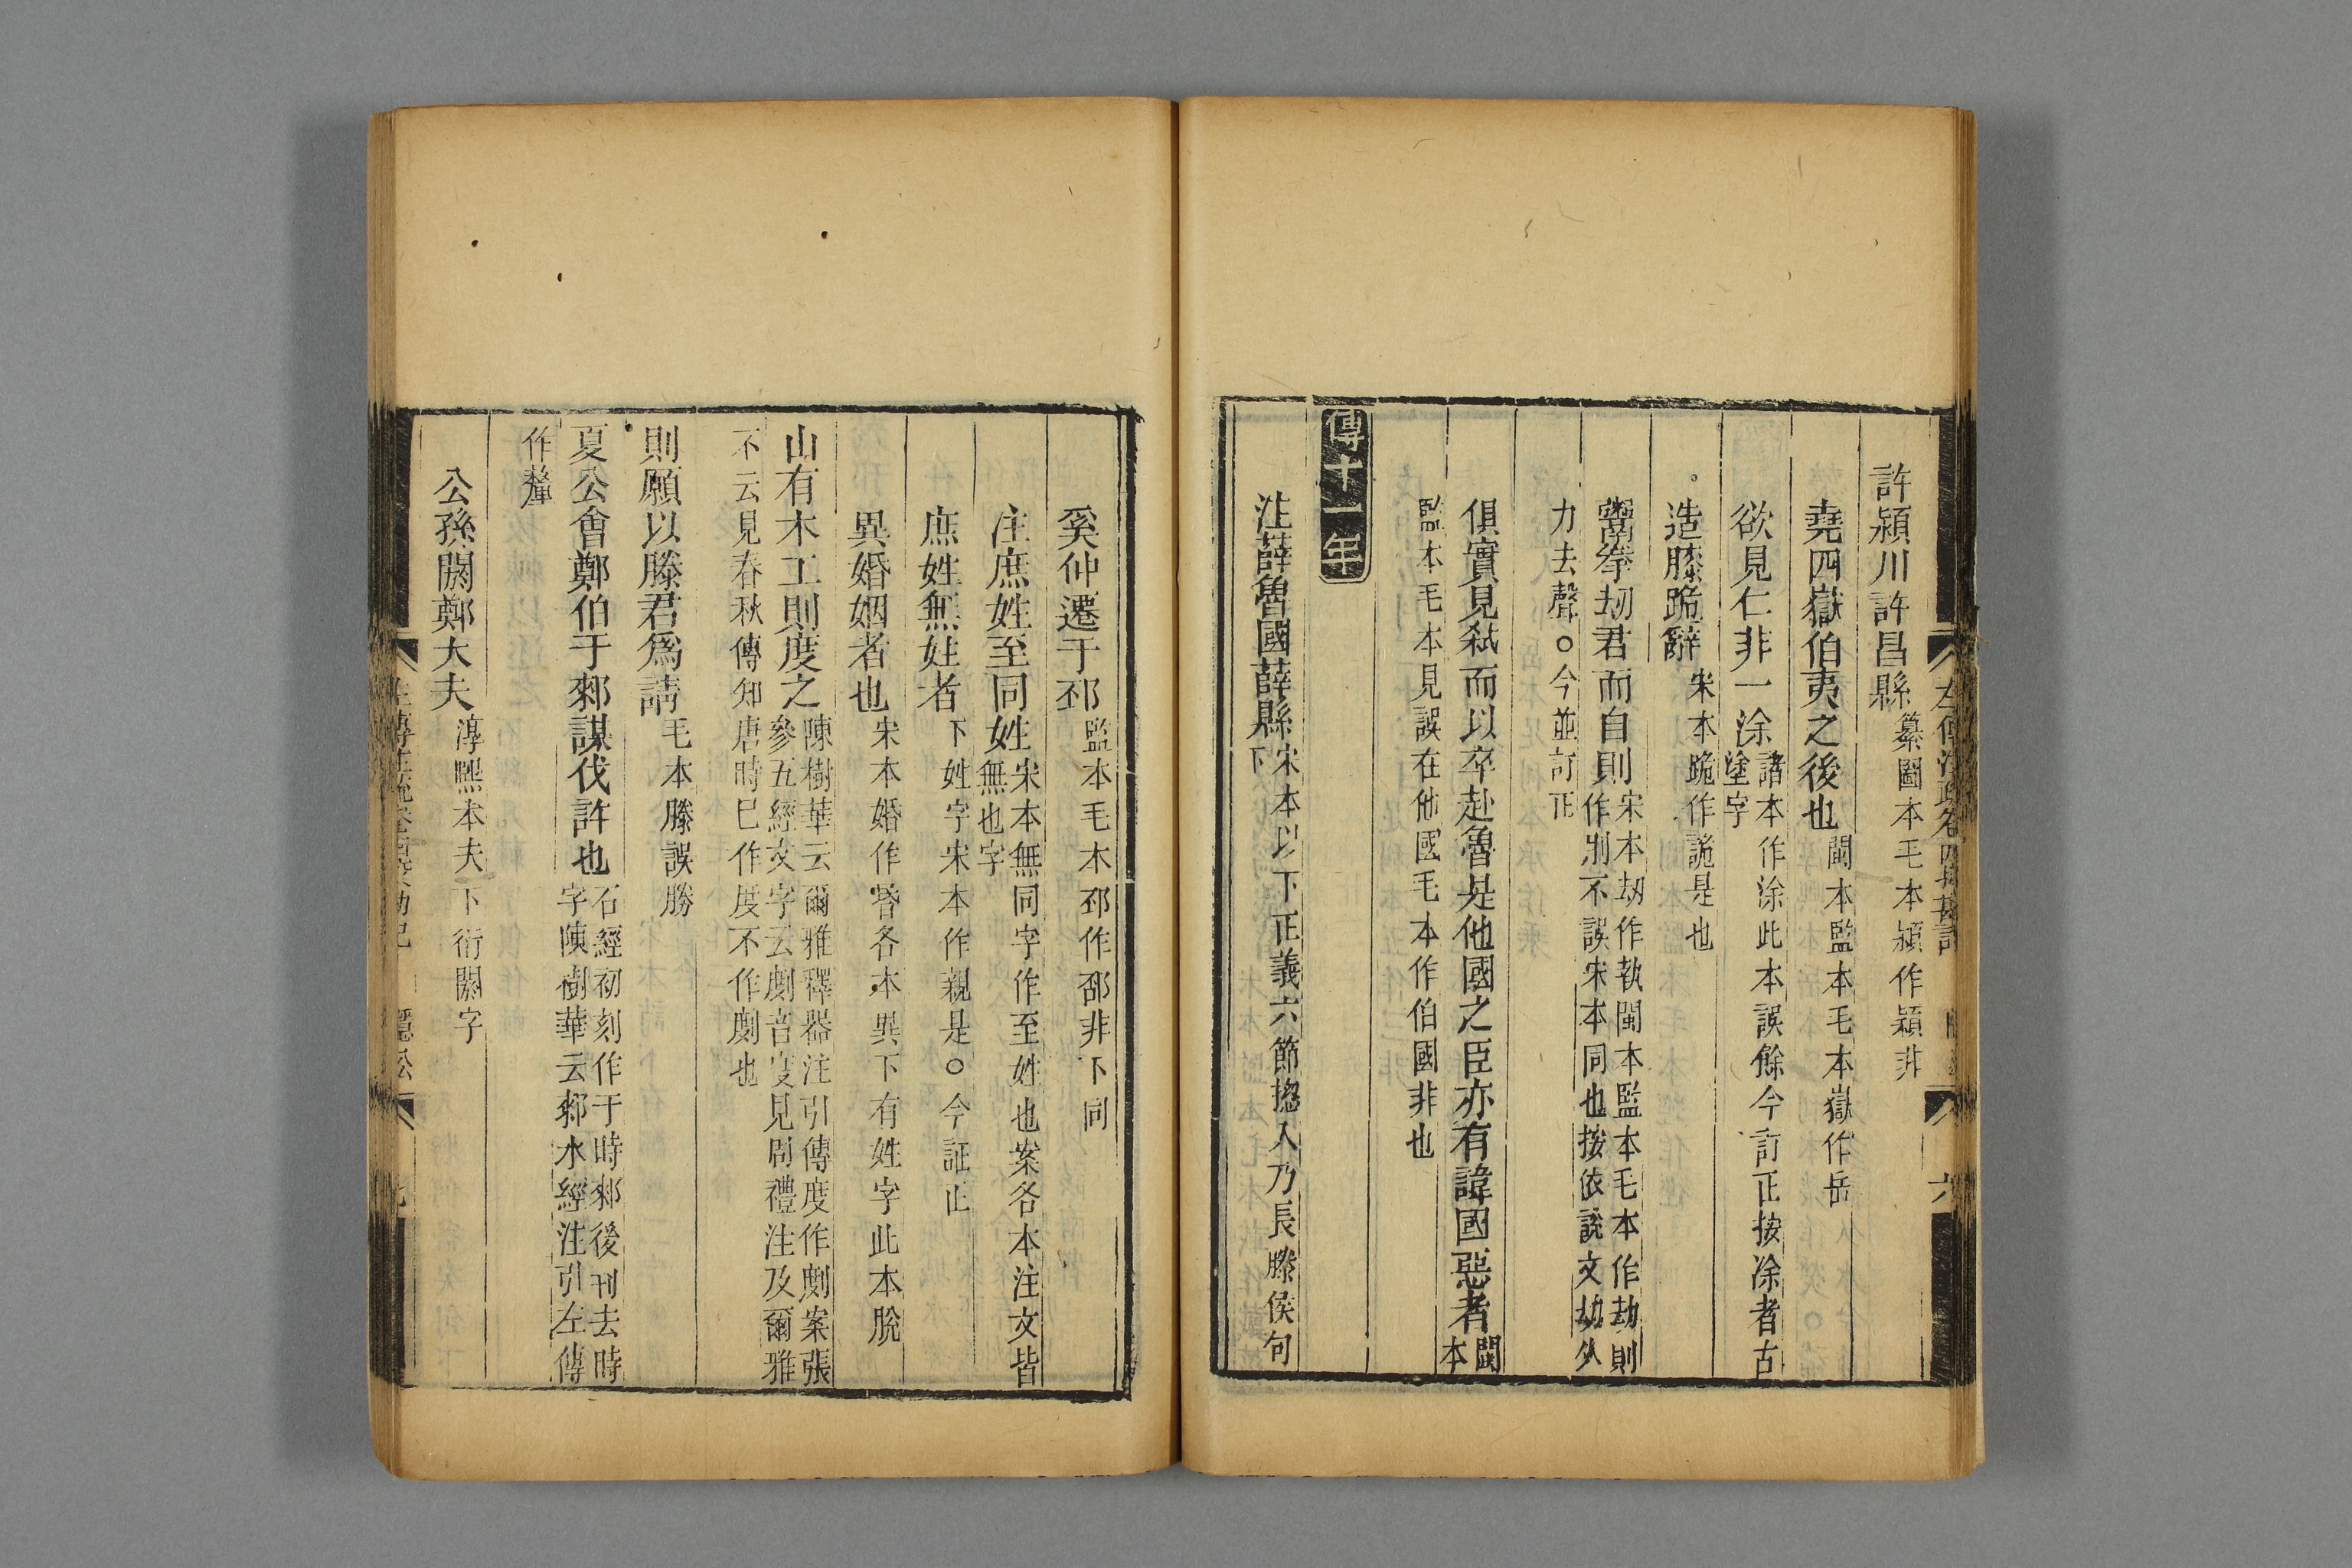 許潁川許昌縣 纂圖本毛本潁作穎非
堯四嶽伯夷之後也 閩本監本毛本嶽作岳
欲見仁非一涂 諸本作涂此本誤餘今訂正按涂者古
塗字
造膝跪辭 宋本跪作詭是也
鬻拳刼君而自則 宋本刼作執閩本監本毛本作劫則
作刖不誤宋本同也按依說文劫从
力去聲○今並訂正
俱實見弑而以卒赴魯是他國之臣亦有諱國惡者 閩
本
監本毛本見誤在他國毛本作伯國非也
傳十一年
注薛魯國薛縣 宋本以下正義六節揔入乃長滕侯句
下
奚仲遷于邳 監本毛本邳作邵非下同
注庶姓至同姓 宋本無同字作至姓也案各本注文皆
無也字
庶姓無姓者 下姓字宋本作親是○今証正
異婚姻者也 宋本婚作昬各本異下有姓字此本脫
山有木工則度之 陳樹華云爾雅釋器注引傳度作劇案張
參五經文字云劇音度見周禮注及爾雅
不云見春秋傳知唐時已作度不作劇也
則願以滕君爲請 毛本滕誤勝
夏公會鄭伯于郲謀伐許也 石經初刻作于時郲後刊去時
字陳樹華云郲水經注引左傳
作釐
公孫閼鄭大夫 淳熙本夫下衍閼字
隱公